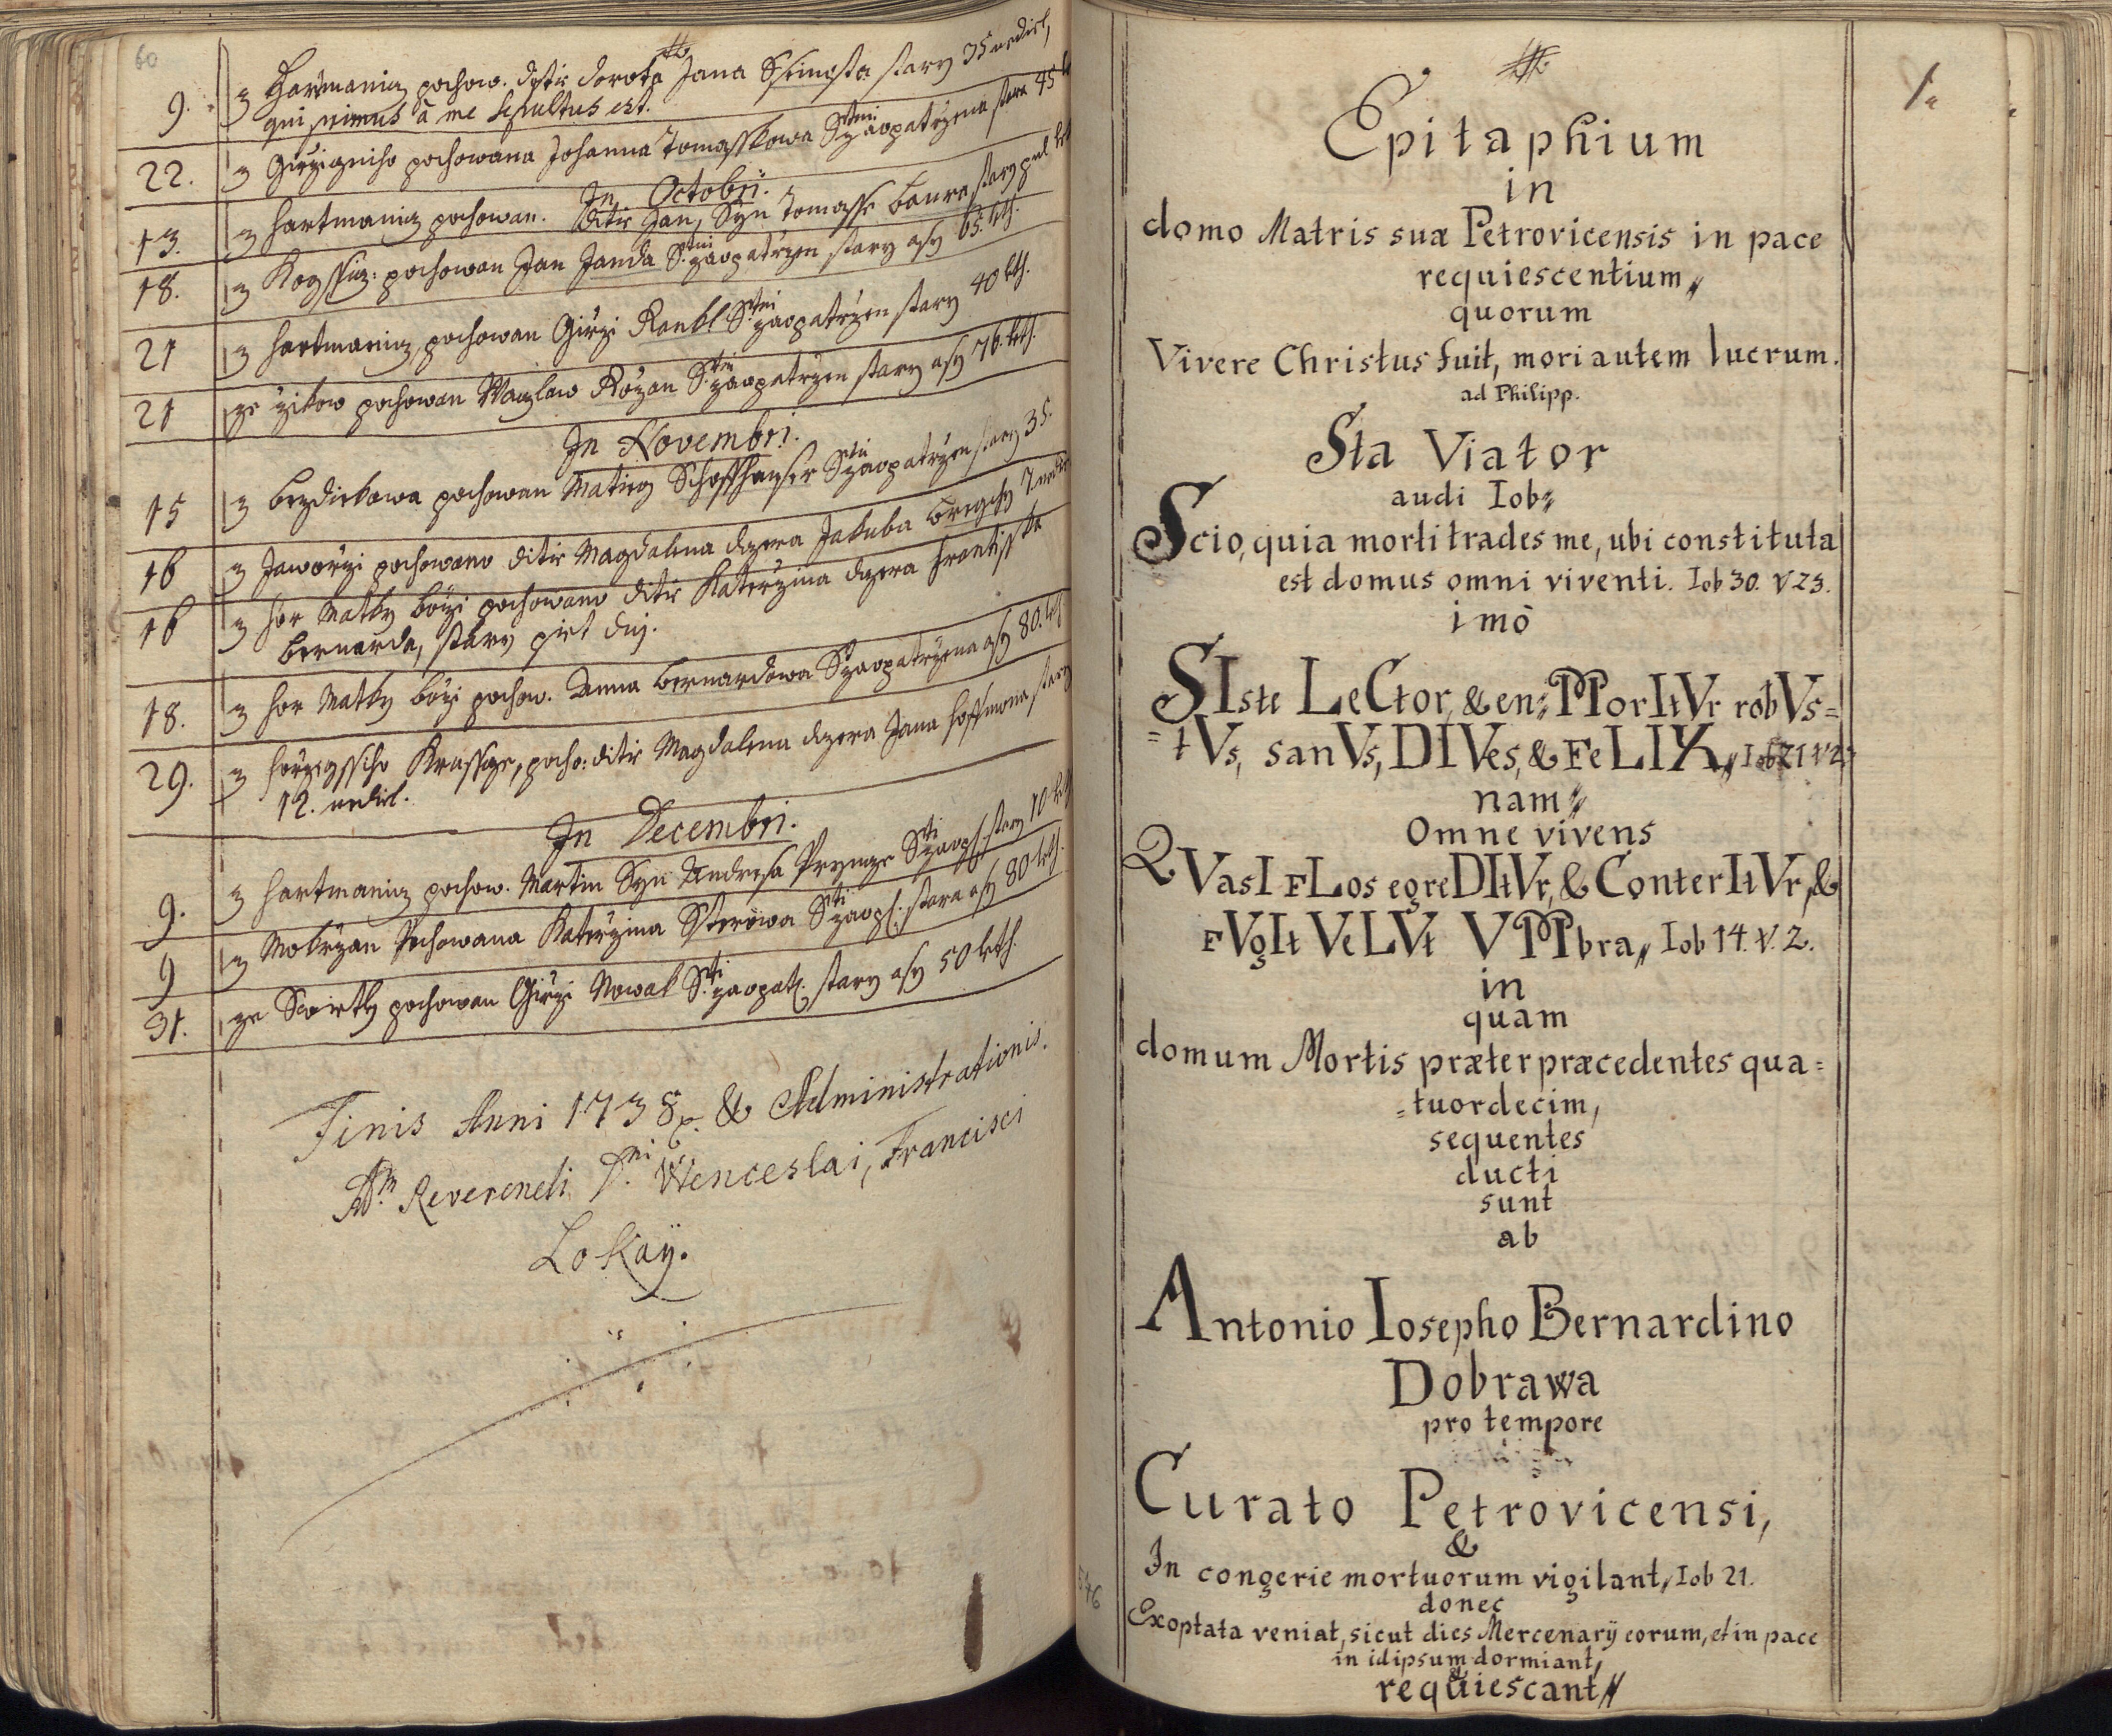 60
9. z Hartmanicz pochow. ditie Dorota Jana stary 35 nediel,
qui primus à me sepultus est.
22. z pochowana Johanna Tomasskowa S.tmi zaopatrżena stara 45
In Octobri.
13. z Hartmanicz pochowan. ditie Jan, Syn Tomasse Baura stary pul
18. z pochowan Jan Janda S.tmi zaopatrżen stary asy 65. leth.
21 z Hartmanicz pochowan Girżi S.tmi zaopatrżen stary 40 leth.
21 ze żikow pochowan Waczlaw Rożan S.tmi zaopatrżen stary asy 76. leth.
In Novembri.
15 z Bezdiekowa pochowan Matieg Schoffhanser S.ti zaopatrżen stary 35.
16 z Jaworżi pochowano ditie Magdalena dczera Jakuba
16 z hor Matky Bożi pochowano ditie Katerżina dczera Frantisska
Bernarda, stary piet dnj.
18. z hor Matky Bożi pochow. Anna Bernardowa S.ti zaopatrżena asy 80. let
29. z horżegssiho Krussecz, pocho: ditie Magdalena dczera Jana Hoffmana stary
12. nediel.
In Decembri.
9. z Hartmanicz pochow. Martin Syn Andresa S.ti zaopł. stary 10
9 z Mokrżan Pochowana Katerżina S.ti zaopł. stara asy 80 leth.
31. ze Swietly pochowan Girżi Nowak S.ti zaopatł. stary asy 50 leth.
Finis Anni 1738. & Administrationis
A.m Reverendi D.ni Wenceslai, Francisci
Lokaÿ.
1.
Epitaphium
in
domo Matris suæ Petrovicensis in pace
requiescentium,,
quorum
Vivere Christus fuit, mori autem lucrum.
ad Philipp.
Sta Viator
audi Iob,,
Scio, quia morti trades me, ubi constituta
est domus omni viventi. Iob 30. v 23.
imò
SIste LeCtor, & en; MorItVr robVs=
=tVs, sanVs, DIVes, & FeLIX,, Iob 21 v 23
nam,,
Omne vivens
QVasI FLos egreDItVr, & ConterItVr, &
FVgIt VeLVt VMbra,, Iob 14. v. 2.
in
quam
domum Mortis præter præcedentes qua=
=tuordecim,
sequentes
ducti
sunt
ab
Antonio Iosepho Bernardino
Dobrawa
pro tempore
Curato Petrovicensi,
&
In congerie mortuorum vigilant,, Iob 21.
donec
Exoptata veniat, sicut dies Mercenarÿ eorum, et in pace
in idipsum dormiant,
&
requiescant,,